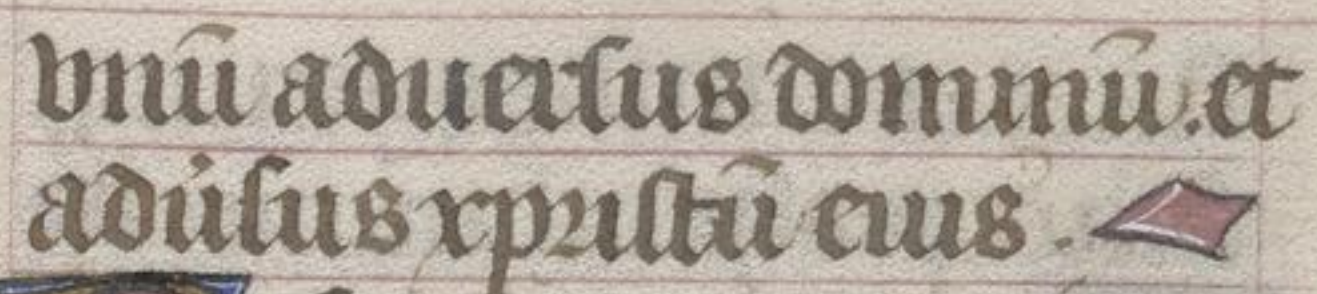 vnū aduersus dominū. et
adu̓sus xpristū eius.